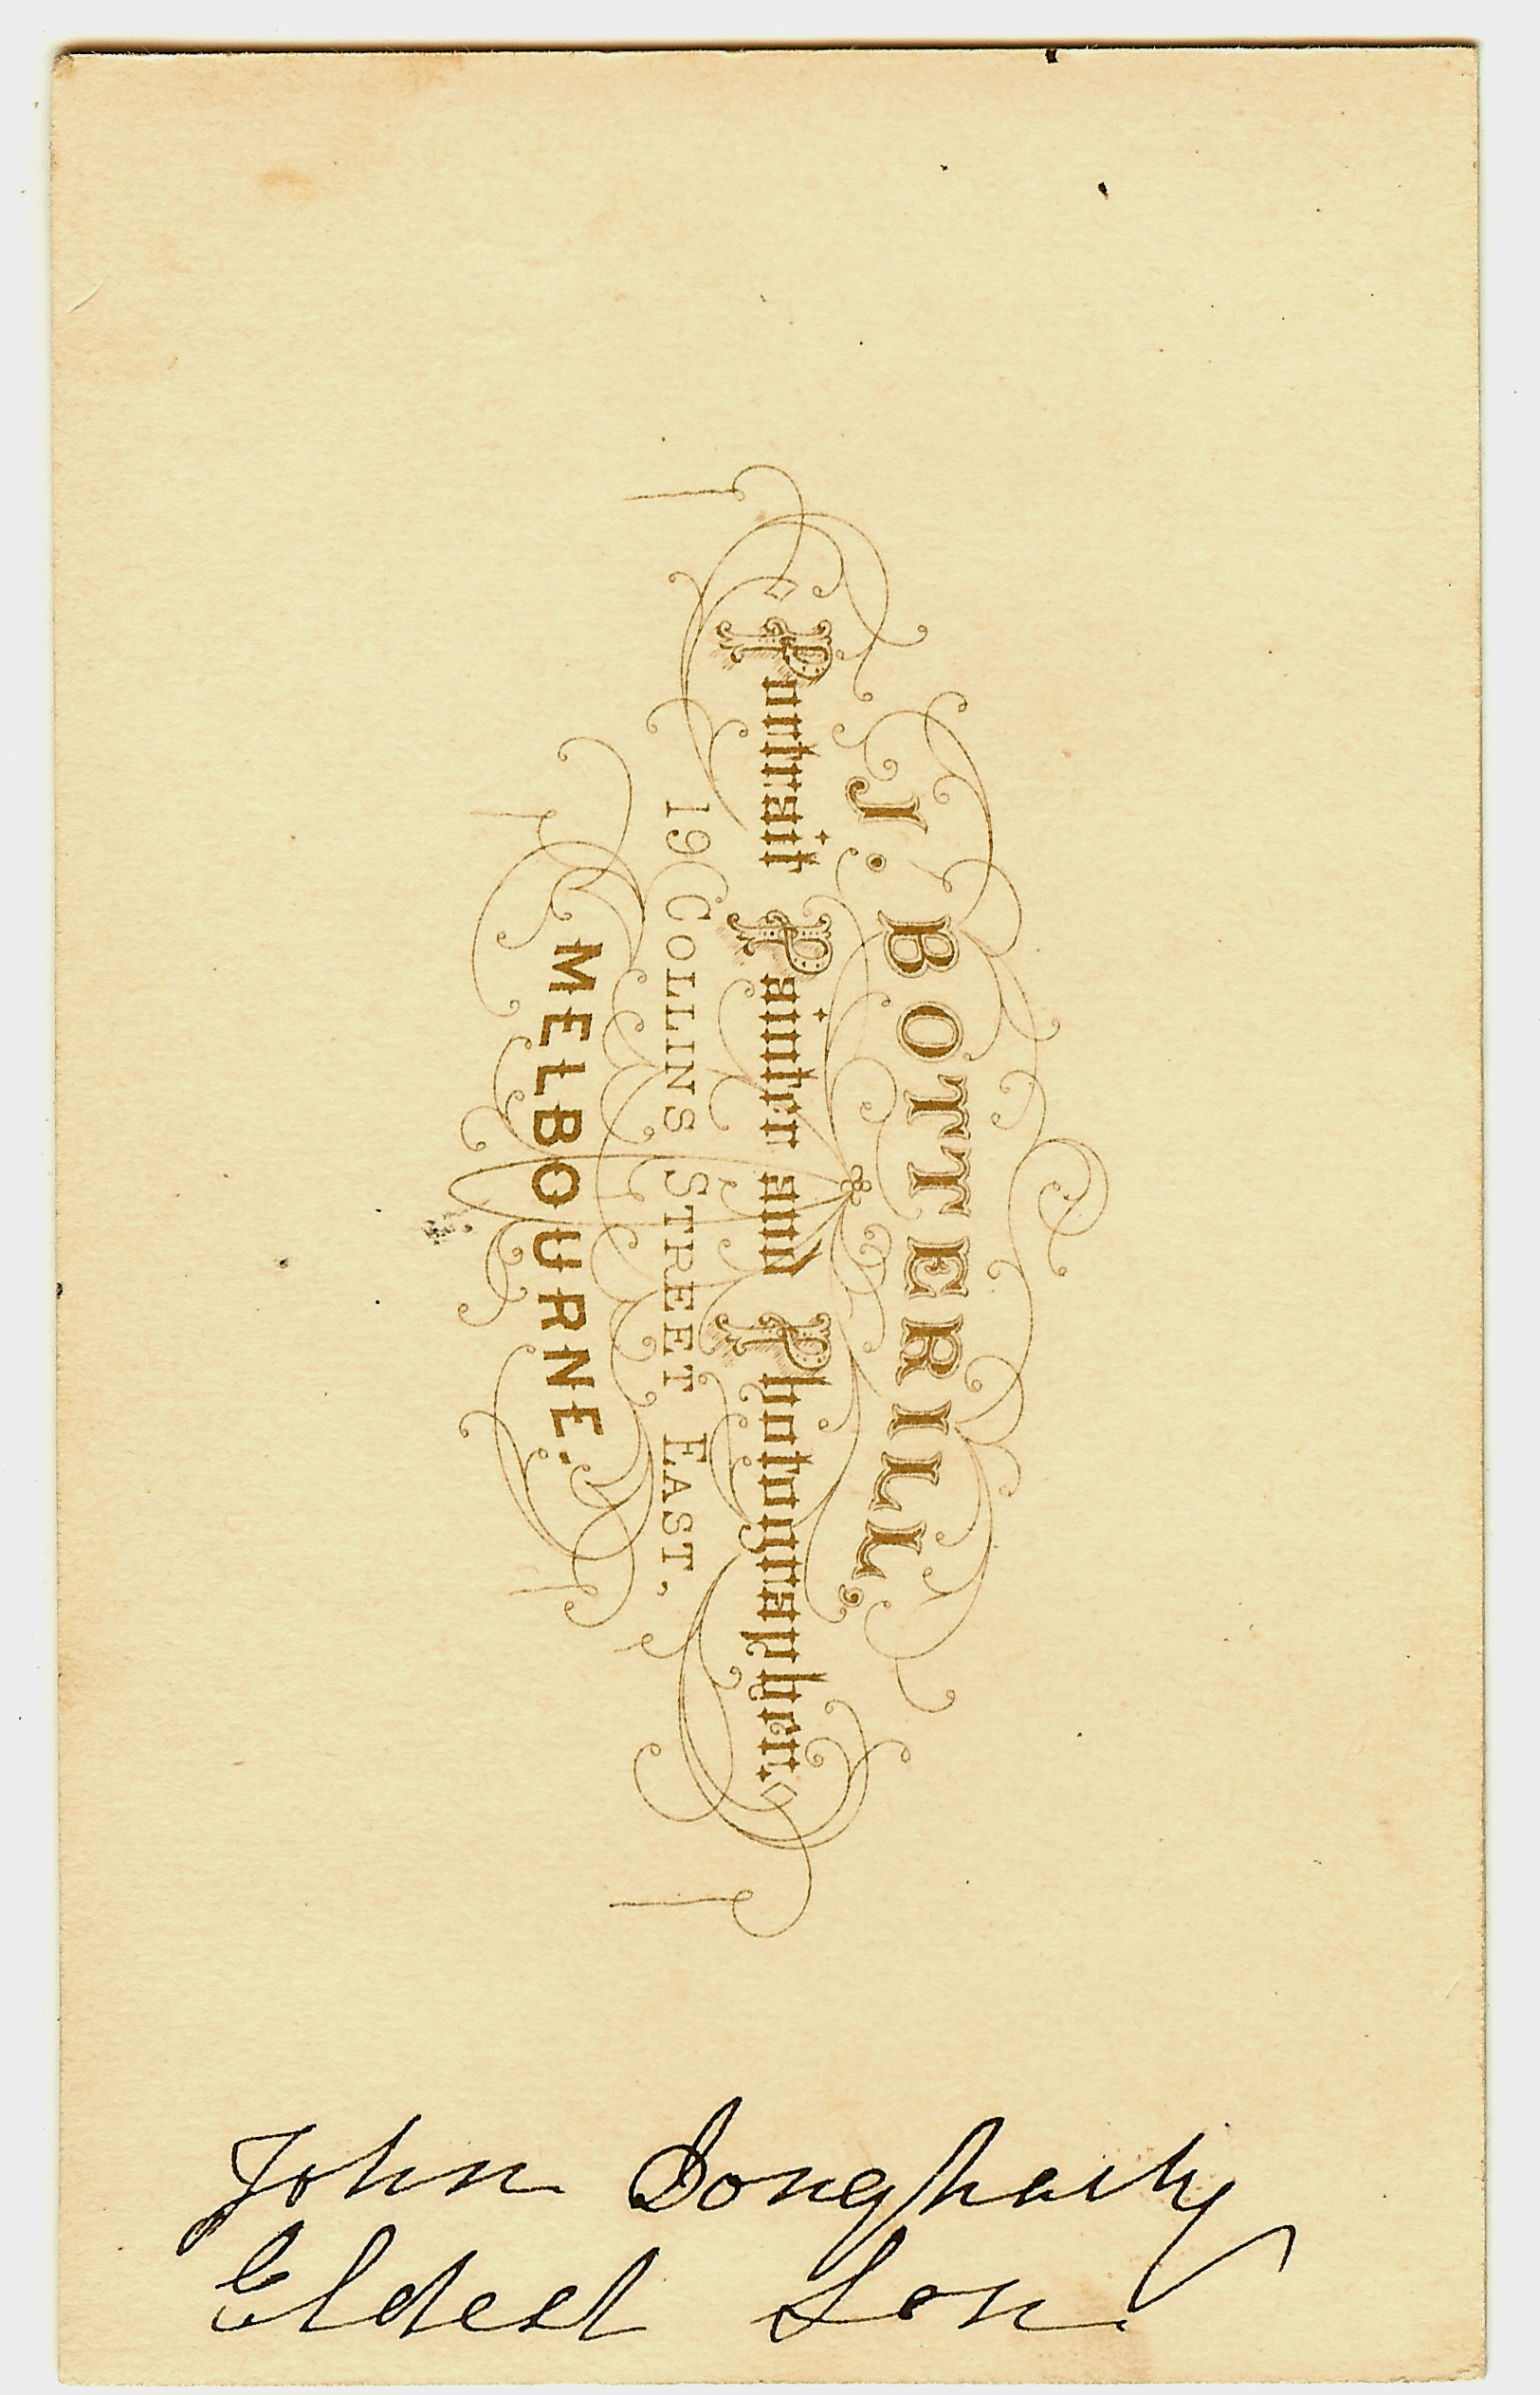 J. BOTTERILL,
Portrait Painter and Photographer.
19 COLLINS STREET EAST,
MELBOURNE.
John Dougharty
Eldest Son